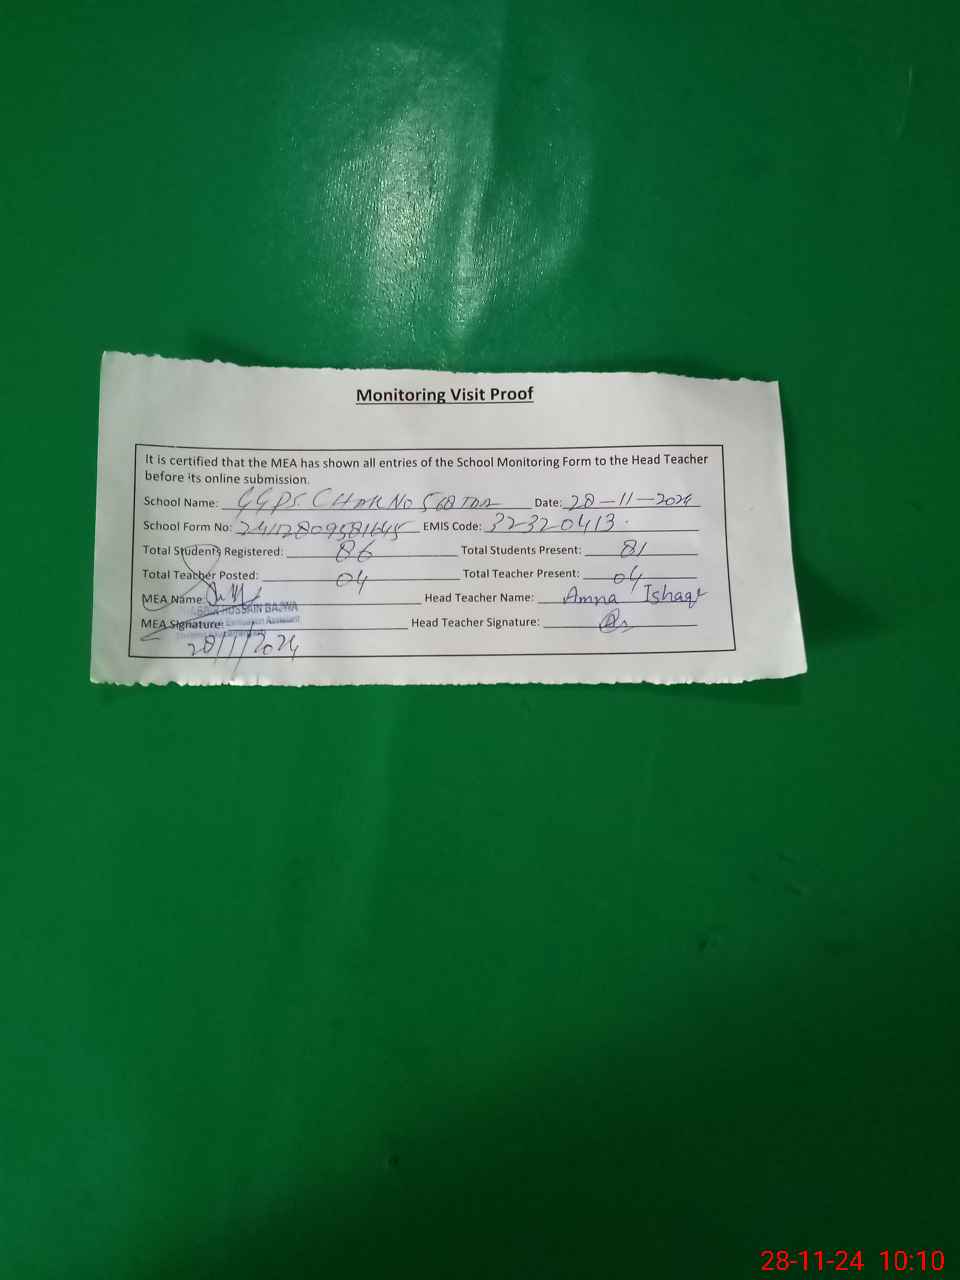 Monitoring Visit Proof
It is certified that the MEA has shown all entries of the School Monitoring Form to the Head Teacher
before its online submission.
School Name: GGPS CHAK No 568 TDA Date: 28-11-2024
School Form No: EMIS Code: 32320413.
Total Students Registered: 86 Total Students Present: 81
Total Teacher Posted: 04 Total Teacher Present: 04
MEA Name: Head Teacher Name: Amna Ishaq
HUSSAIN BAJWA
MEA Signature: Head Teacher Signature:
28/11/2024
28-11-24 10:10